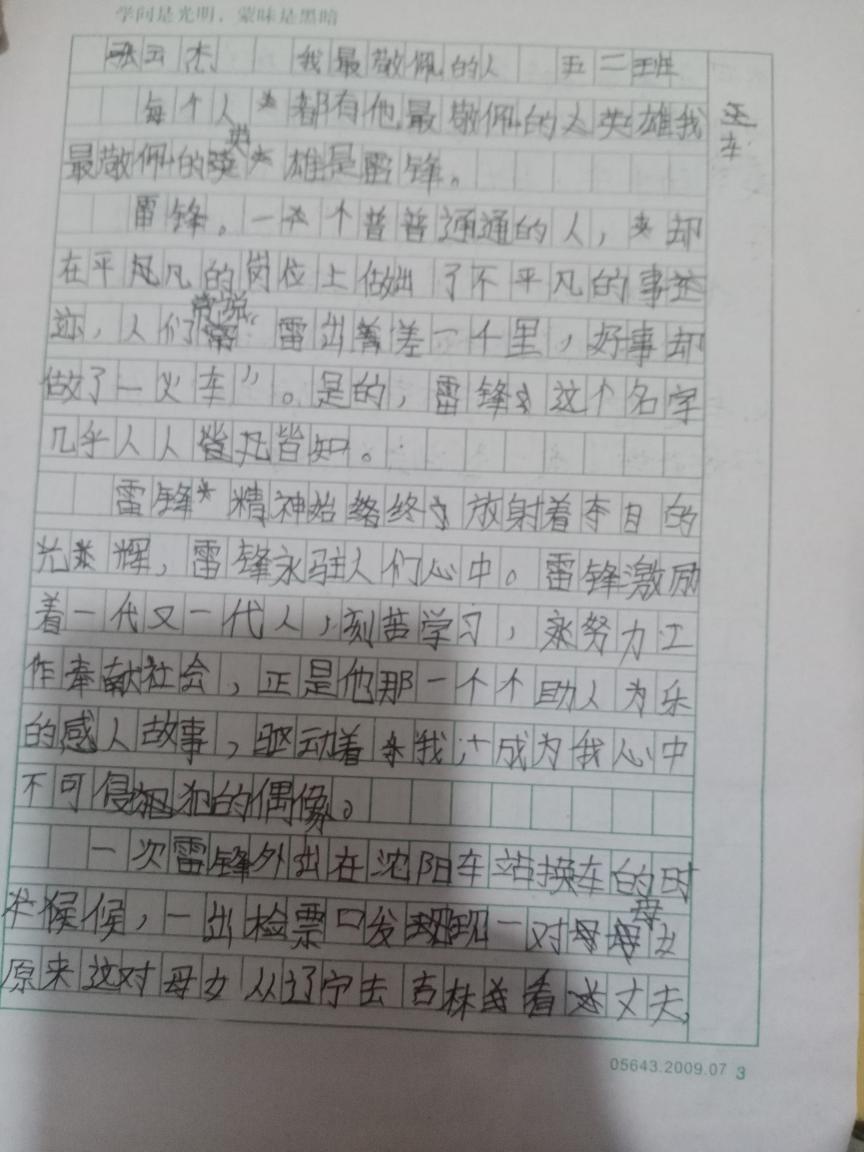 学问是光明，蒙昧是黑暗
张云杰 我最敬佩的人 五二班
每个人都有他最敬佩的人英雄我
最敬佩的英雄是雷锋。
雷锋。一个普普通通的人，却
在平凡凡的岗位上做出了不平凡的事迹
迹，人们常说“雷出差一千里，好事却
做了一火车”。是的，雷锋这个名字
几乎人人皆凡皆知。
雷锋精神始络终放射着夺目的
光辉，雷锋永驻人们心中。雷锋激励
着一代又一代人，刻苦学习，努力工
作奉献社会，正是他那一个个助人为乐
的感人故事，驱动着我成为我心中
不可侵犯的偶像。
一次雷锋外出在沈阳车站换车的时
候候，一出检票口发现一对母女
原来这对母女从辽宁去吉林看丈夫，
车
05643.2009.07 3